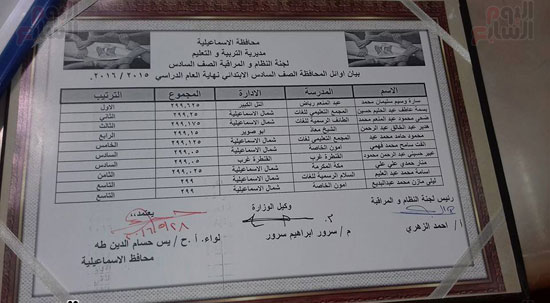 اليوم السابع
محافظة الاسماعيلية
مديرية التربية و التعليم
لجنة النظام و المراقبة الصف السادس
بيان اوائل المحافظة الصف السادس الابتدائي نهاية العام الدراسي ٢٠١٥ / ٢٠١٦
الاسم المدرسة الادارة المجموع الترتيب
سارة وسيم سليمان محمد عبد المنعم رياض التل الكبير ٢٩٩.٦٢٥ الاول
بسمة عاطف عبد الحليم حسين المجمع التعليمي للغات شمال الاسماعيلية ٢٩٩.٢٥ الثاني
ضحي محمود عبد المنعم محمد الطائف الرسمية للغات شمال الاسماعيلية ٢٩٩.١٢٥ الثالث
هدير عبد الخالق عبد الرحمن الشيخ معاذ ابو صوير ٢٩٩.١٥ الرابع
محمود حامد محمد عيد المجمع التعليمي للغات شمال الاسماعيلية ٢٩٩.١٢٥ الخامس
الفت سامح محمد فهمي امون الخاصة شمال الاسماعيلية ٢٩٩.٠٥ السادس
عبير حسيني عبد الرحمن محمود القنطرة غرب القنطرة غرب ٢٩٩.٠٥ السادس
منار حمدي علي علي مكة المكرمة شمال الاسماعيلية ٢٩٩.٠٢٥ الثامن
اسامة محمد عبد العليم السلام الرسمية للغات شمال الاسماعيلية ٢٩٩ التاسع
ليلي مازن محمد عبدالبديع امون الخاصة شمال الاسماعيلية ٢٩٩ التاسع
رئيس لجنة النظام و المراقبة وكيل الوزارة يعتمد،،
أ / احمد الزهري م / سرور ابراهيم سرور لواء. أ. ح / يس حسام الدين طه
محافظ الاسماعيلية